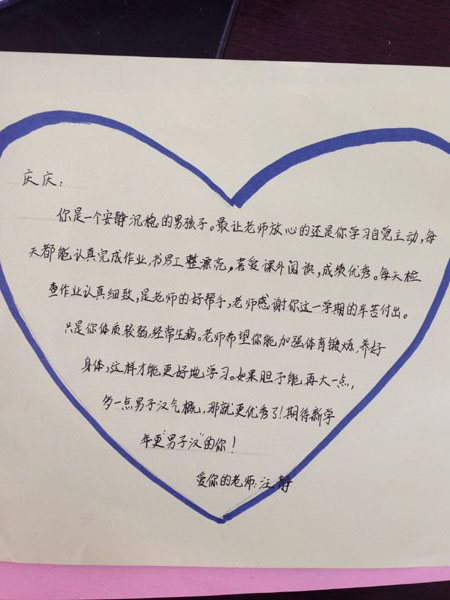 庆庆：
你是一个安静沉稳的男孩子。最让老师放心的还是你学习自觉主动，每
天都能认真完成作业，书写工整漂亮，喜爱课外阅读，成绩优秀。每天检
查作业认真细致，是老师的好帮手，老师感谢你这一学期的辛苦付出。
只是你体质较弱，经常生病。老师希望你能加强体育锻炼，养好
身体，这样才能更好地学习。如果胆子能再大一点，
多一点男子汉气概，那就更优秀了！期待新学
年更"男子汉"的你！
爱你的老师：汪静